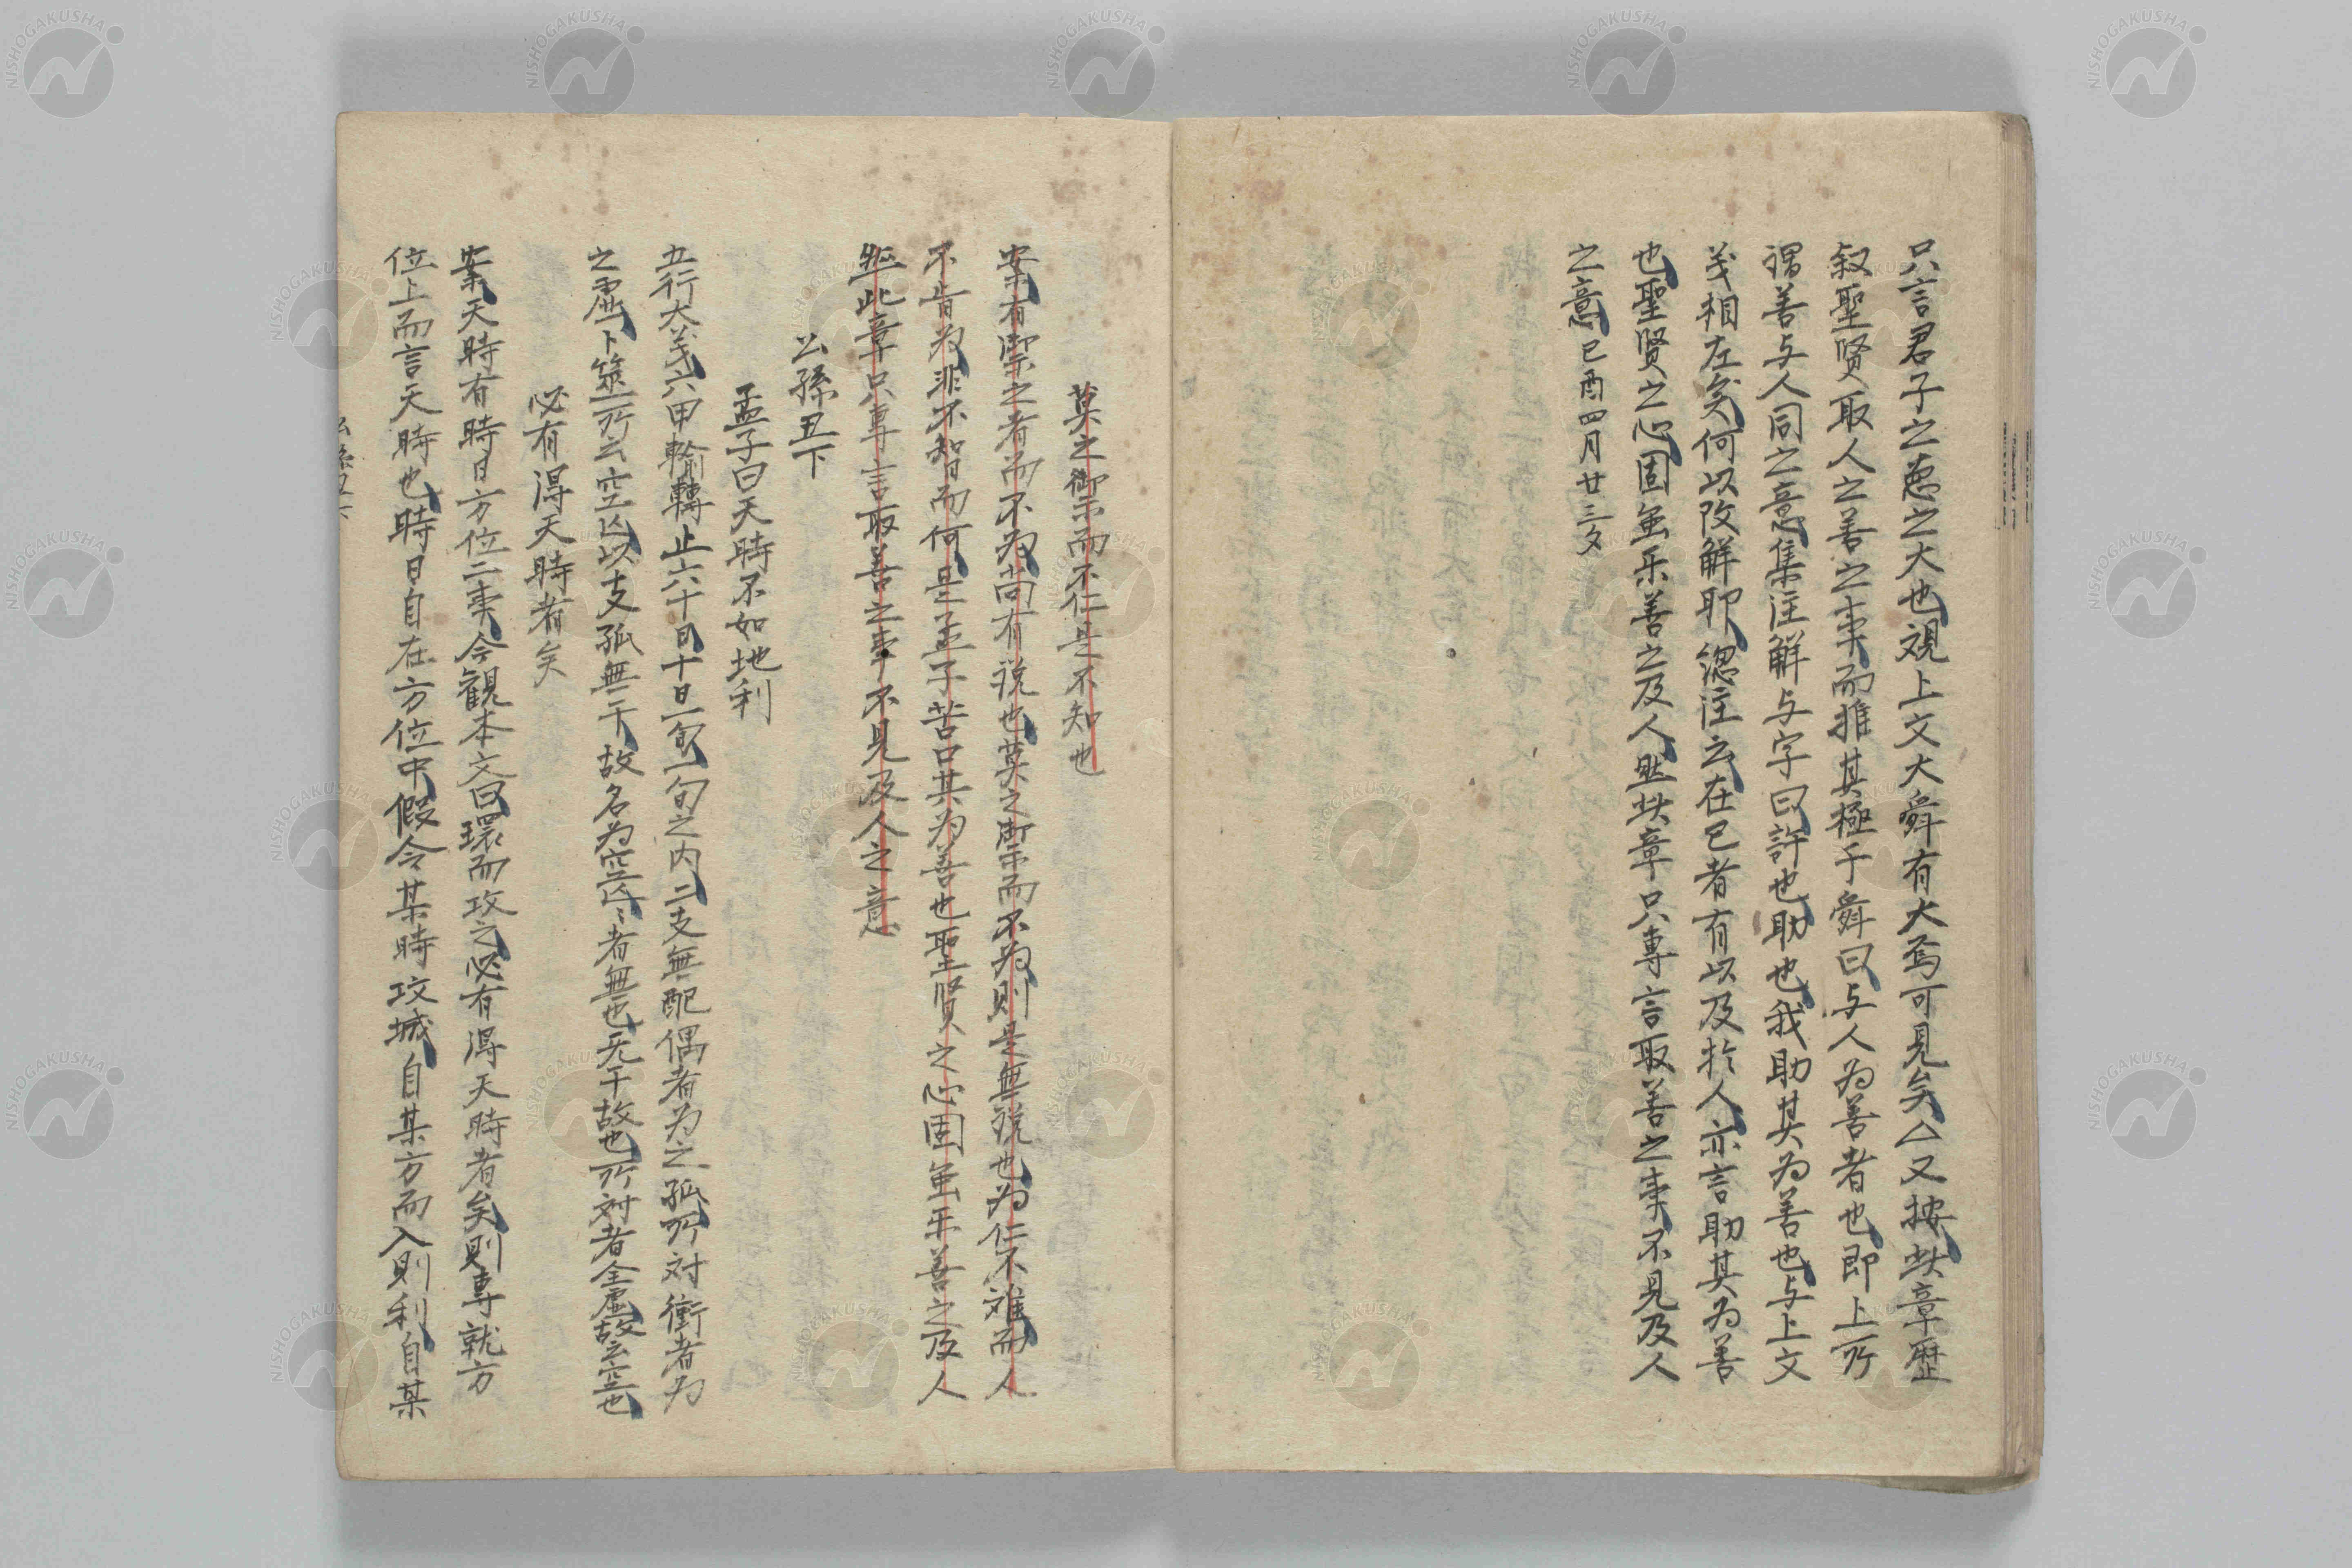 只言君子之慈之大也視上文大舜有大焉可見矣△又按此章歴
叙聖賢取人之善之事而推其極于舜曰与人為善者也即上所
謂善与人同之意集注解与字曰許也助也我助其為善也与上文
义相左矣何以改解耶緫注云在己者有以及於人亦言助其為善
也聖賢之心固虽乐善之及人然此章只專言取善之事不見及人
之意己酉四月廿三夕
莫之御而不仁是不知也
案有禦之者而不為尚有説也莫之禦而不為則是無説也為仁不難而人
不肯為非不智而何是孟子苦口其為善也聖賢之心固虽乐善之及人
然此章只專言取善之事不見及人之意
公孫丑下
孟子曰天時不如地利
五行大义六甲輪轉止六十日十日一旬一旬之内二支無配偶者為之孤所対衝者為
之虚卜筮所云空亡以支孤無干故名為空亡々者無也无干故也所対者全虚故云空也
必有得天時者矣
案天時有時日方位二事今観本文曰環而攻之必有得天時者矣則專就方
位上而言天時也時日自在方位中假令某時攻城自某方而入則利自某
NISHOGAKUSHA